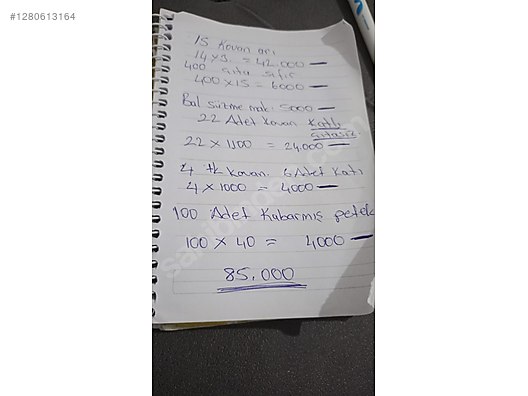 #1280613164
15 Kovan arı
14 x 3. = 42.000 —
400 çıta sıfır
400 x 15 = 6000 —
Bal süzme mak. 5000 —
22 Adet Kovan Katlı
çıtasız
22 x 1100 = 24.000 —
4 tk Kovan. 6 Adet Katı
4 x 1000 = 4000 —
100 Adet Kabarmış petek
100 x 40 = 4000 —
85.000